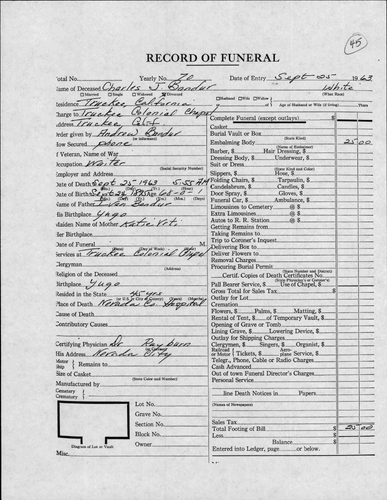 45
RECORD OF FUNERAL
otal No. Yearly No. 70 Date of Entry Sept 25 1963
ame of Deceased Charles J Bandur White
(What Race)
Married Single Widowed Divorced Husband Wife Widow
esidence Truckee, California
Age of Husband or Wife (if living) Years
harge to Truckee Colonial Chapel
Complete Funeral (except outlays) $
ddress Truckee, Calif.
Casket
rder given by Andrew Bandur
Burial Vault or Box
(State Kind)
ow Secured phone
Embalming Body 25 00
(Name of Embalmer)
f Veteran, Name of War
Barber, $ Hair Dressing, $
ccupation Waiter
Dressing Body, $ Underwear, $
(Social Security Number)
Suit or Dress
(State Kind and Color)
mployer and Address
Slippers, $ Hose, $
Date of Death Sept 25 1963 5:55 AM
Folding Chairs, $ Tarpaulin, $
Candelabrum, $ Candles, $
Date of Birth 1895 68-0-1
Door Spray, $ Gloves, $
ame of Father Ivan Bandur
Funeral Car, $ Ambulance, $
is Birthplace Yugo
Limousines to Cemetery @ $
Extra Limousines @ $
Maiden Name of Mother Katie
Autos to R. R. Station @ $
er Birthplace
Getting Remains from
Taking Remains to
Date of Funeral M.
Trip to Coroner's Inquest
ervices at Truckee Colonial Chapel
Delivering Box to
Deliver Flowers to
Clergyman
(Address)
Removal Charges
Religion of the Deceased
Procuring Burial Permit
(State Number and District)
Birthplace Yugo
Certif. Copies of Death Certificates No.
(State Physician's or Coroner's)
Resided in the State 45 yrs
Full Burial Suit, $ Use of Chapel, $
Gross Total for Sales Tax $
Place of Death Nevada Co. Hospital
Outlay for Lot
Cause of Death
Cremation
Flowers, $ Palms, $ Matting, $
Contributory Causes
Rental of Tent, $ of Temporary Vault, $
Opening of Grave or Tomb
Lining Grave, $ Lowering Device, $
Outlay for Shipping Charges
Certifying Physician Dr Rayburn
Clergymen, $ Singers, $ Organist, $
His Address Nevada City
Railroad or Motor $ Tickets, $ Aeroplane Service, $
Motor Ship Remains to
Telegr., Phone, Cable or Radio Charges
Cash Advanced
Size of Casket
(State Color and Number)
Out of town Funeral Director's Charges
Personal Service
Manufactured by
Cemetery
Crematory
line Death Notices in Papers
Lot No.
(Names of Newspapers)
Grave No.
Section No.
Sales Tax
Block No.
Total Footing of Bill $ 25 00
Less
Owner
Diagram of Lot or Vault
Balance $
Misc.
Entered into Ledger, page or below.